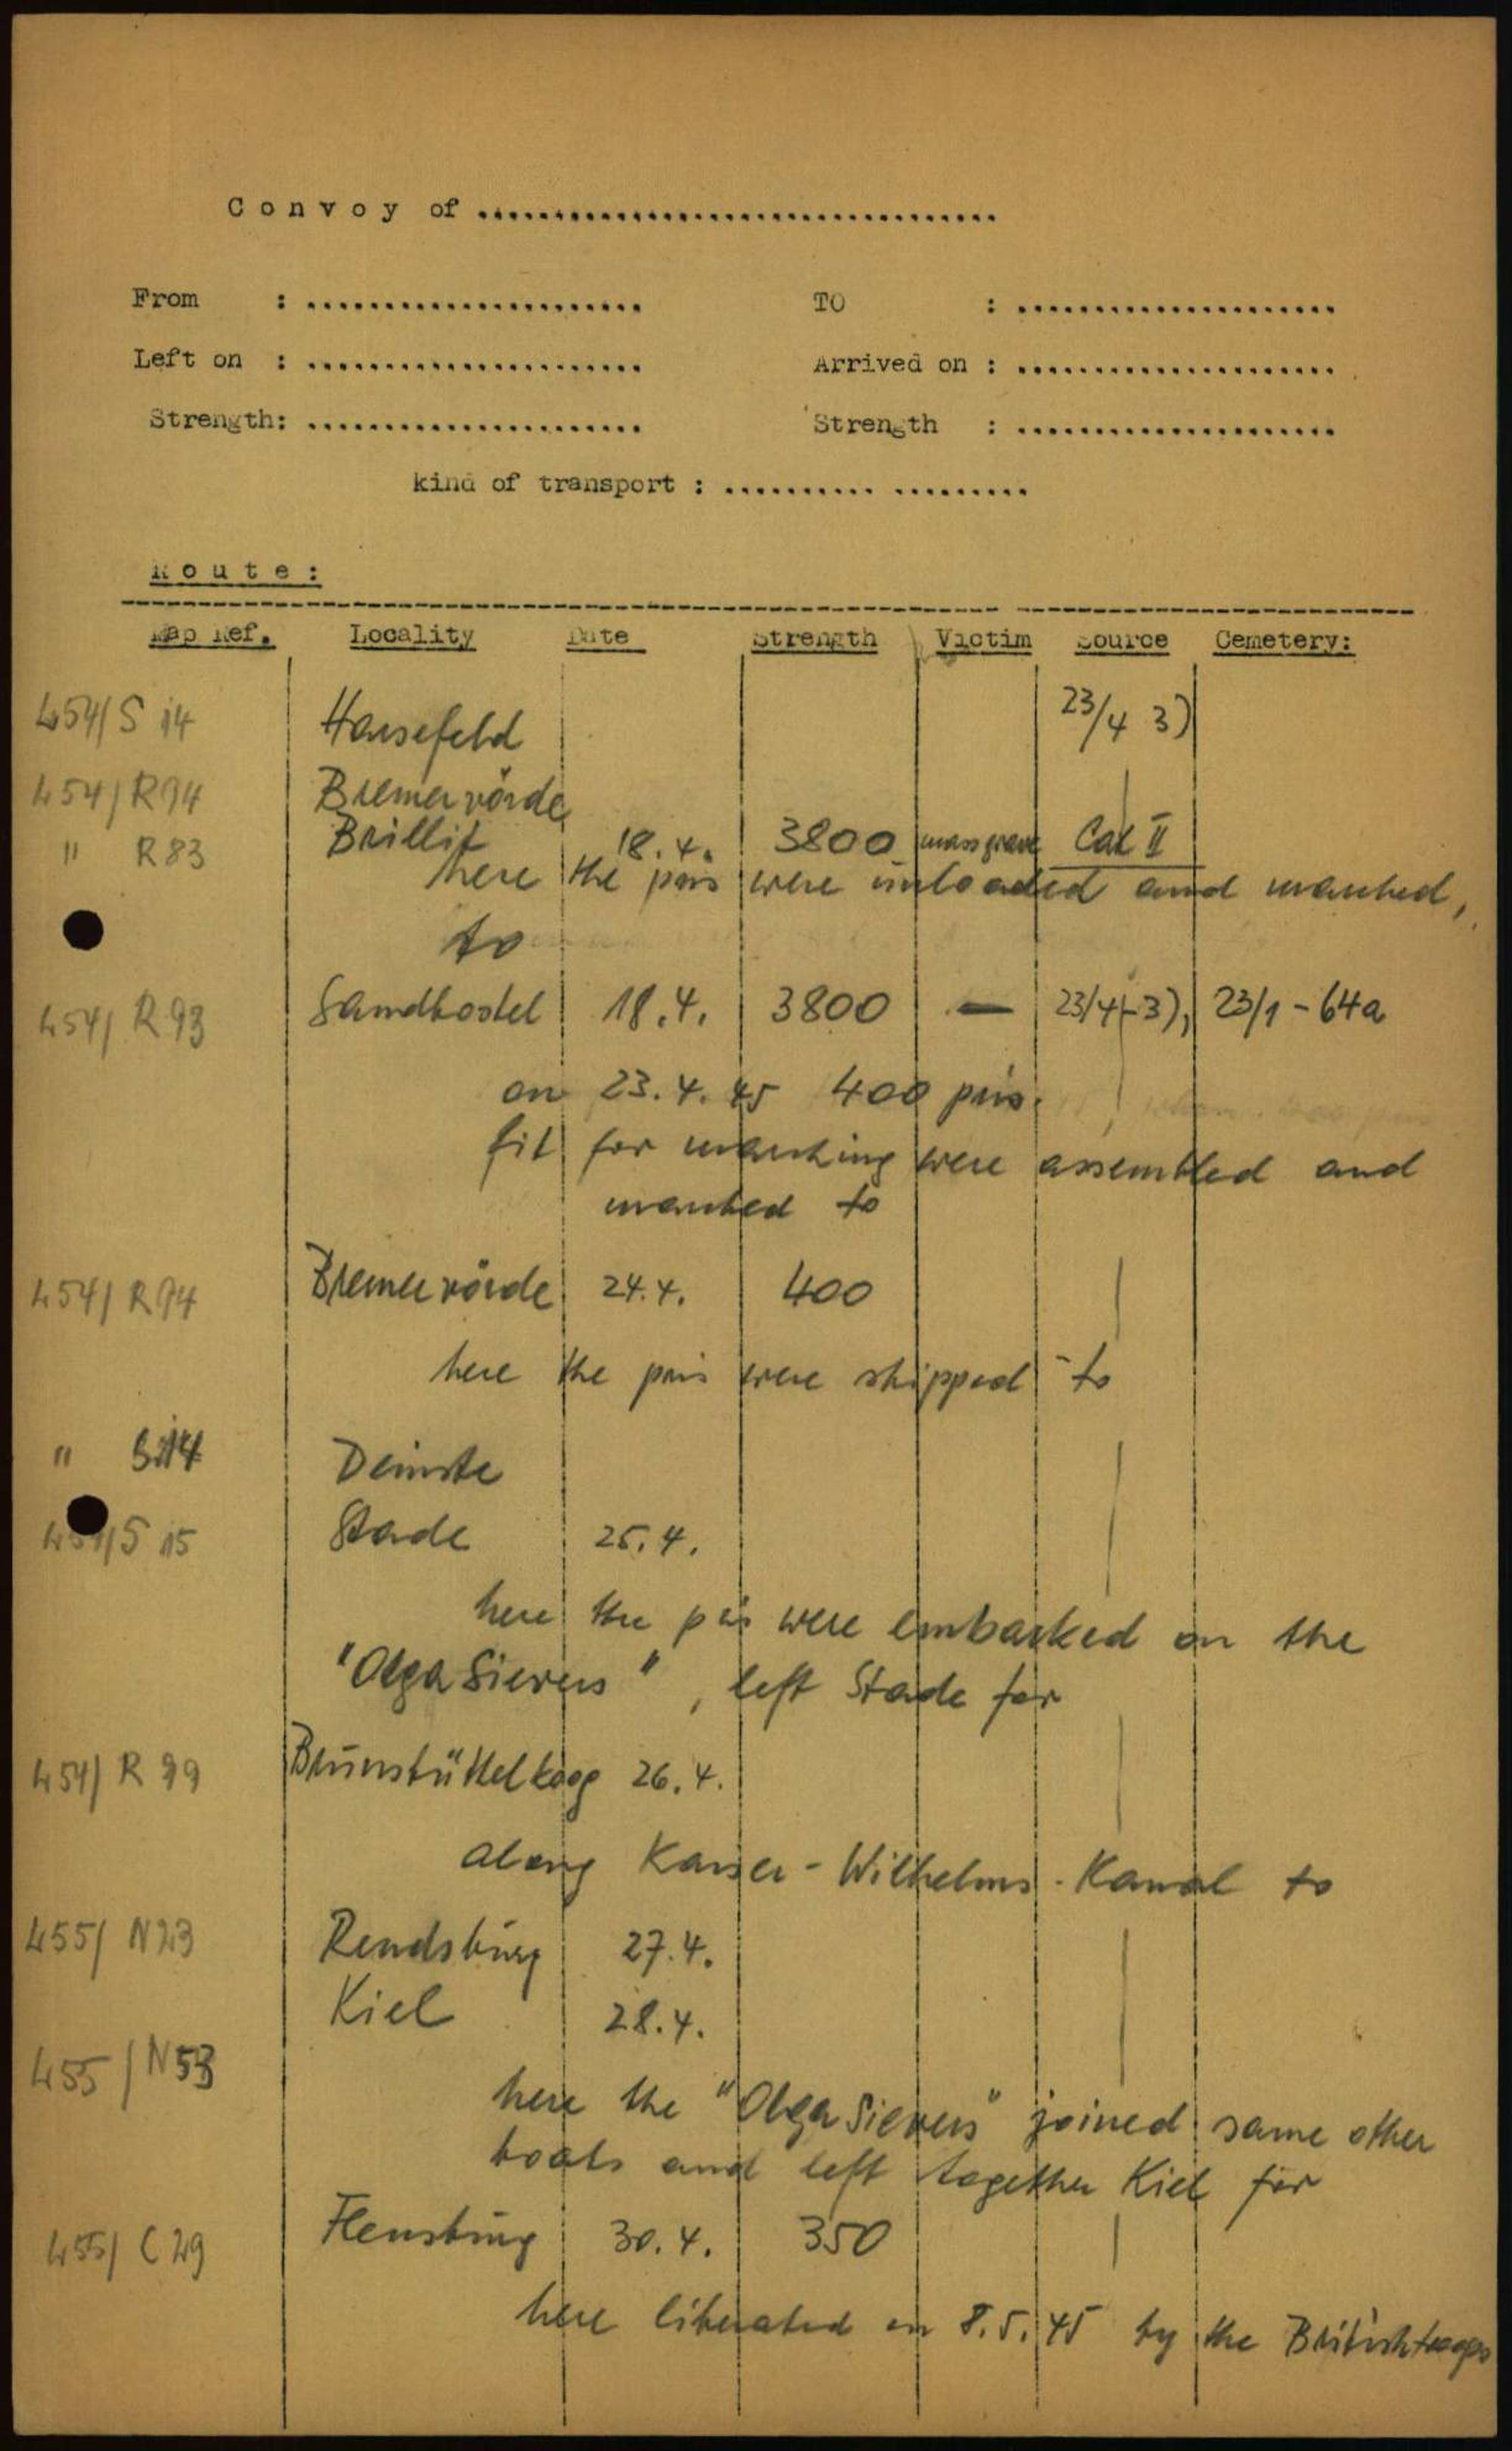 Convoy of ..................................
From : ...................... TO : .....................
Left on : ...................... Arrived on : .....................
Strength: ...................... Strength : .....................
kind of transport : .......... .........
Route:
Map Ref. Locality Date Strength Victim Source Cemetery:
454/S 14 Harsefeld 23/4 3)
454/R94 Bremervörde
" R83 Brillit 18.4. 3800 mass grave Cat II
here the pris were unloaded and marched,
to
454/ R93 Sandbostel 18.4. 3800 — 23/4-3), 23/1-64a
on 23.4.45 400 pris.
fit for marching were assembled and
marched to
454/ R94 Bremervörde 24.4. 400
here the pris were shipped to
" S14 Deinste
454/S 15 Stade 25.4.
here the pris were embarked on the
"Olga Sievers", left Stade for
454/ R 99 Brunsbüttelkoog 26.4.
along Kaiser-Wilhelms-Kanal to
455/ N23 Rendsburg 27.4.
455/N53 Kiel 28.4.
here the "Olga Sievers" joined same other
boats and left together Kiel for
455/ C29 Flensburg 30.4. 350
here liberated on 8.5.45 by the British troops